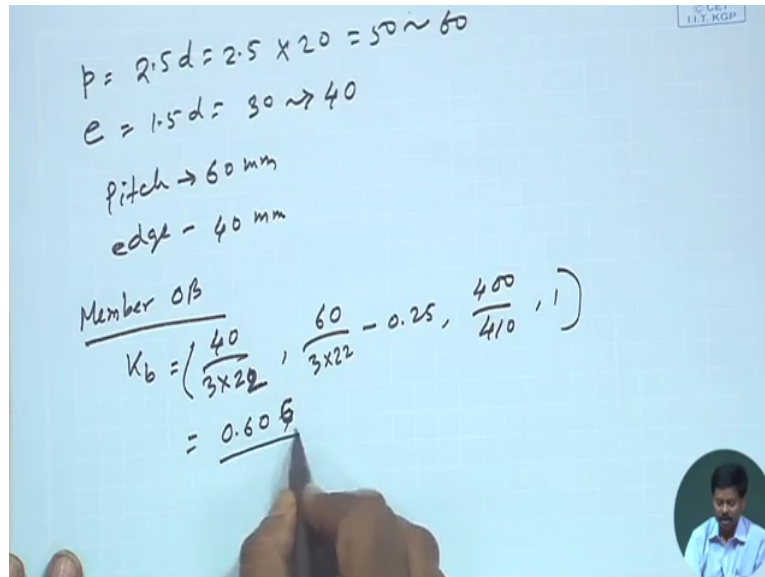 © CET
I.I.T. KGP
p = 2.5d = 2.5 × 20 = 50 ~ 60
e = 1.5d = 30 ~> 40
Pitch → 60 mm
edge - 40 mm
Member OB
K_b = ( 40/3×22 , 60/3×22 - 0.25, 400/410 , 1 )
= 0.606